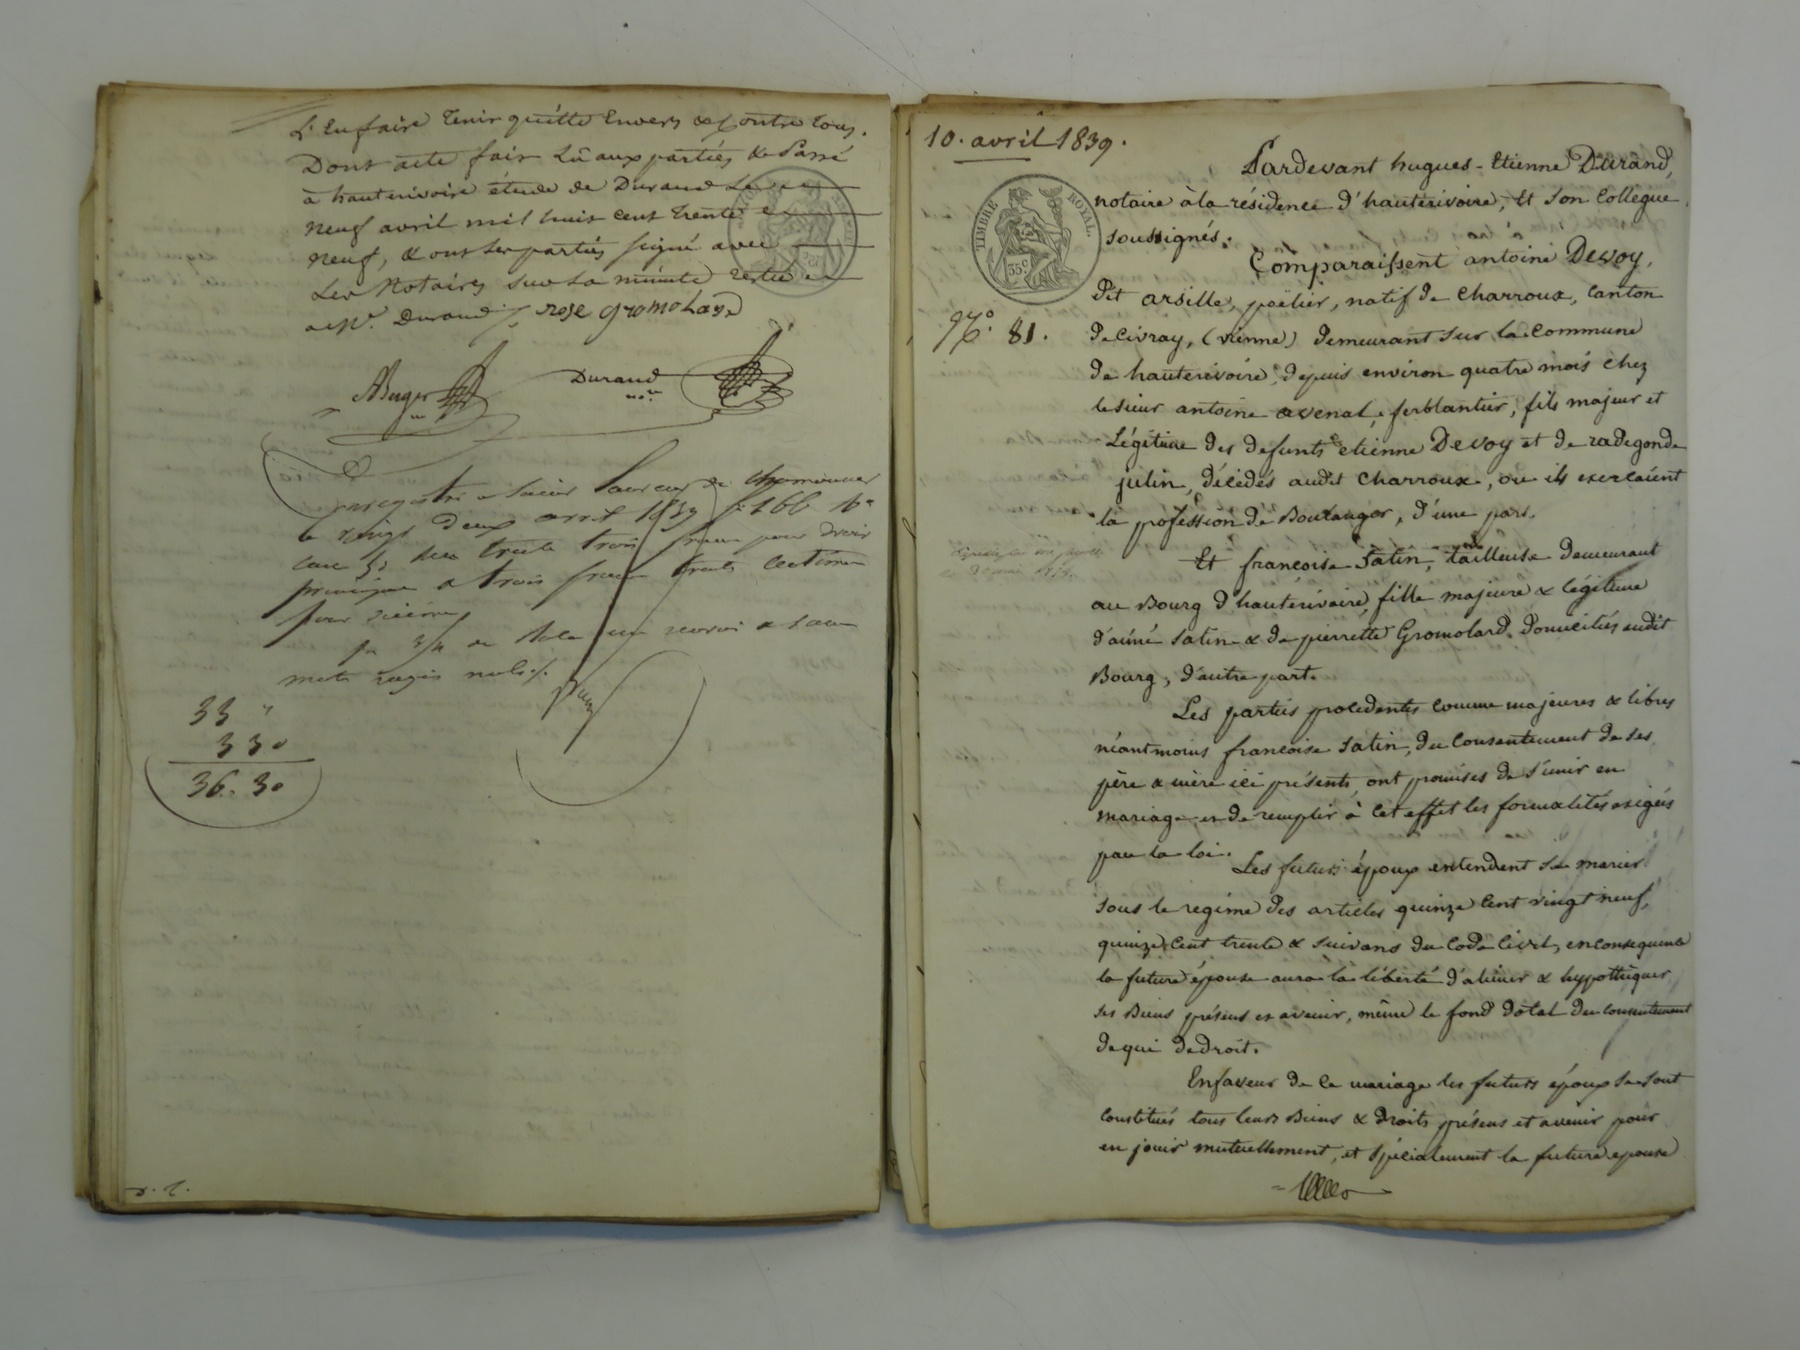 L'en faire tenir quitte envers & contre tous.
Dont acte fait Lû aux parties & Passé
à hauterivoire étude de Durand Le
neuf avril mil huit cent trente
neuf, & ont les parties signé avec
Les Notaires sur la minute restée
à Me. Durand /. rose gromolard
Durand
nre.
le vingt deux avril 1839 f: 166 
trente trois francs pour droit
principal & trois francs trente centimes
pour dixième
mots rayés nuls /.
33 "
3 30
36. 30
10. avril 1839.
Pardevant hugues-Etienne Durand,
notaire à la résidence d'hauterivoire, et son Collègue
soussignés.
TIMBRE ROYAL.
35 c
Comparaissent antoine Devoy,
dit arsille, poëlier, natif de Charroux, Canton
No. 81.
de Civray, (vienne) demeurant sur la Commune
de hauterivoire, depuis environ quatre mois chez
le sieur antoine avenal, ferblantier, fils majeur et
Légitime des defunts etienne Devoy et de radegonde
julin, décédés audit Charroux, ou ils exercaient
la profession de Boulanger, d'une part.
Et francoise Satin, tailleuse demeurant
au Bourg d'hauterivoire, fille majeure & légitime
d'aimé Satin & de pierrette Gromolard, domiciliés audit
Bourg, d'autre part.
Les parties procédentes comme majeures & libres
néantmoins francoise Satin, du Consentement de ses
père & mère ici présents, ont promises de s'unir en
mariage et de remplir à cet effet les formalités exigées
par la loi.
Les futurs époux entendent se marier
sous le regime des articles quinze cent vingt neuf,
quinze Cent trente & suivans du Code Civil, en consequence
la future épouse aura la liberté d'aliener & hypothéquer
ses Biens présens et avenir, même le fond dotal du consentement
de qui de droit.
En faveur de ce mariage les futurs époux se sont
Constitués tous leurs Biens & droits présens et avenir pour
en jouir mutuellement, et spécialement la future epouse